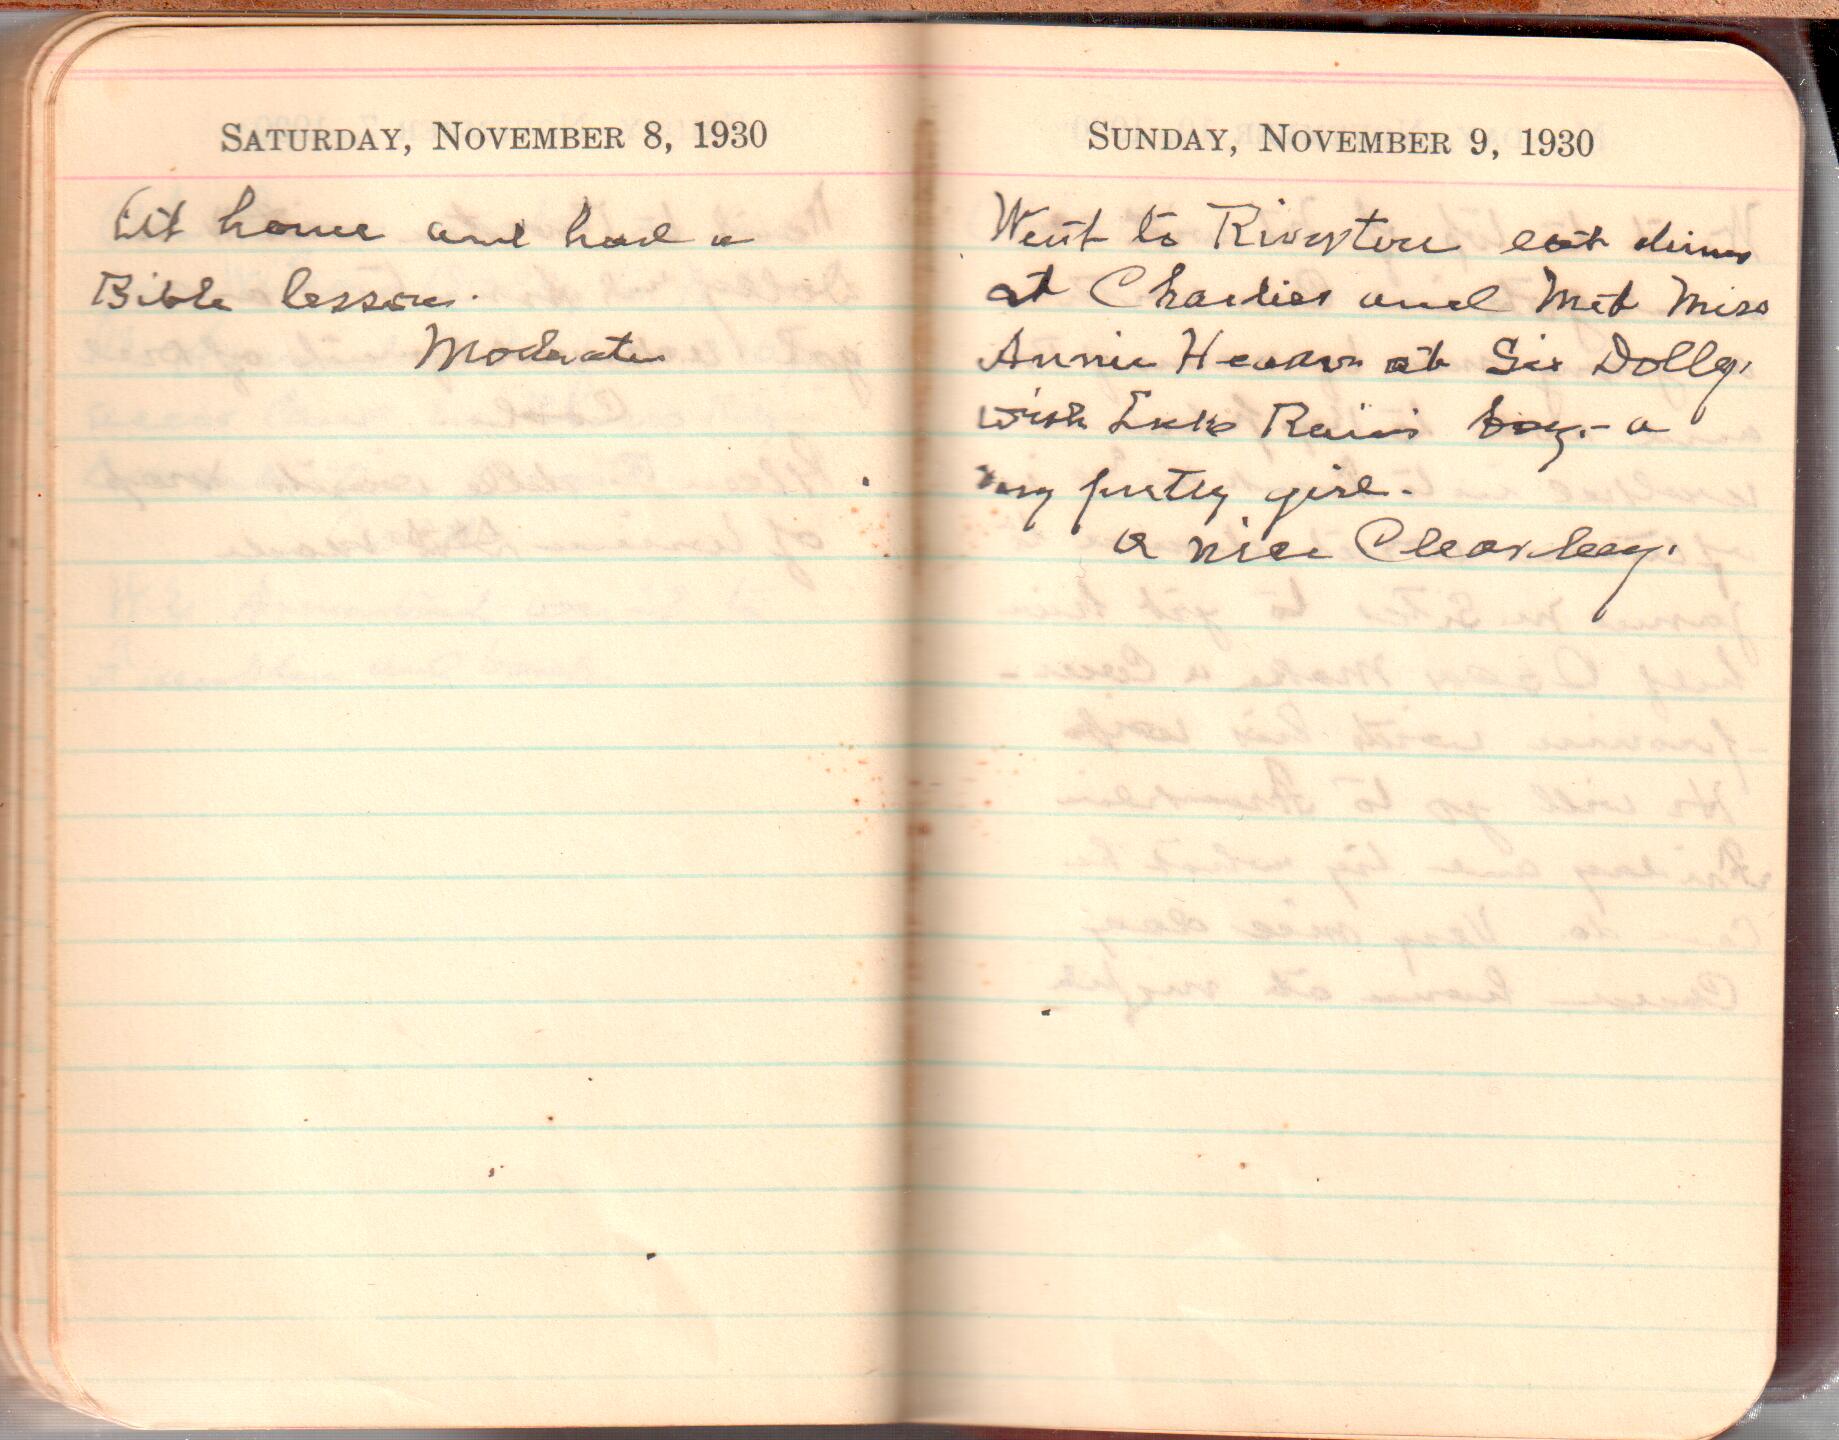 SATURDAY, NOVEMBER 8, 1930
At home and had a
Bible lesson.
Moderate
SUNDAY, NOVEMBER 9, 1930
Went to Riverton eat dinner
at Charlies and Met Miss
Annie Heaven at Sis Dolly.
with Rains boy - a
very pretty girl.
a nice Clear day.